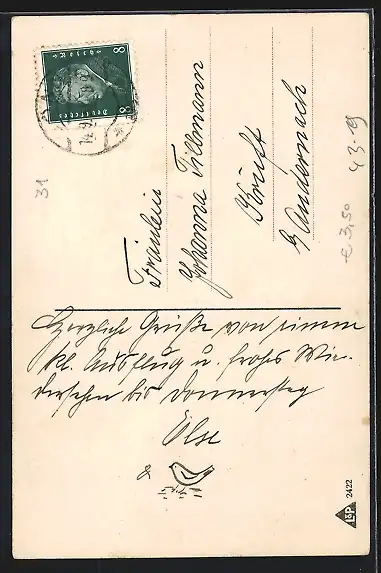 8 8
Deutsches
Reich
31
Fräulein
Johanna Tillmann
Kruft
b/ Andernach
€ 3,50 43-19
Herzliche Grüße von einem
kl. Ausflug u. frohes Wie-
dersehen bis Donnerstag
Else
&
L&P 2422